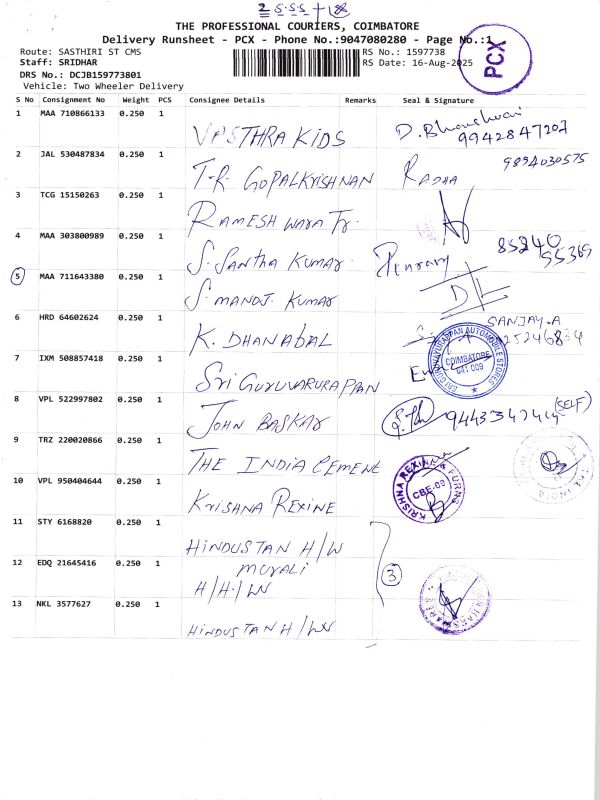 2 5.5.5
THE PROFESSIONAL COURIERS, COIMBATORE
Delivery Runsheet - PCX - Phone No.:9047080280 - Page No.:1
PCX
Route: SASTHIRI ST CMS
RS No.: 1597738
Staff: SRIDHAR
RS Date: 16-Aug-2025
DRS No.: DCJB159773801
Vehicle: Two Wheeler Delivery
S No Consignment No Weight PCS Consignee Details Remarks Seal & Signature
1 MAA 710866133 0.250 1 VPSTHRA KIDS D. Bhaneshwari 9942847207
2 JAL 530487834 0.250 1 T.R. GOPALKRISHNAN RADHA 9894030575
3 TCG 15150263 0.250 1 RAMESH
4 MAA 303800989 0.250 1 S. SANTHA KUMAR 85240 55369
5 MAA 711643380 0.250 1 S. MANOJ. KUMAR
6 HRD 64602624 0.250 1 K. DHANABAL SANJAY.A
7 IXM 508857418 0.250 1 SRI GURUVARURAPPAN
SRI GURUVAYURAPPAN AUTOMOBILE STORES COIMBATORE 641 009
8 VPL 522997802 0.250 1 JOHN BASKAR (SELF)
9 TRZ 220020866 0.250 1 THE INDIA CEMENT
10 VPL 950404644 0.250 1 KRISHNA REXINE
KRISHNA REXINE & FURNI CBE-09
11 STY 6168820 0.250 1 HINDUSTAN H/W
MURALI
12 EDQ 21645416 0.250 1 H/H/W
3
13 NKL 3577627 0.250 1 HINDUSTAN H/W